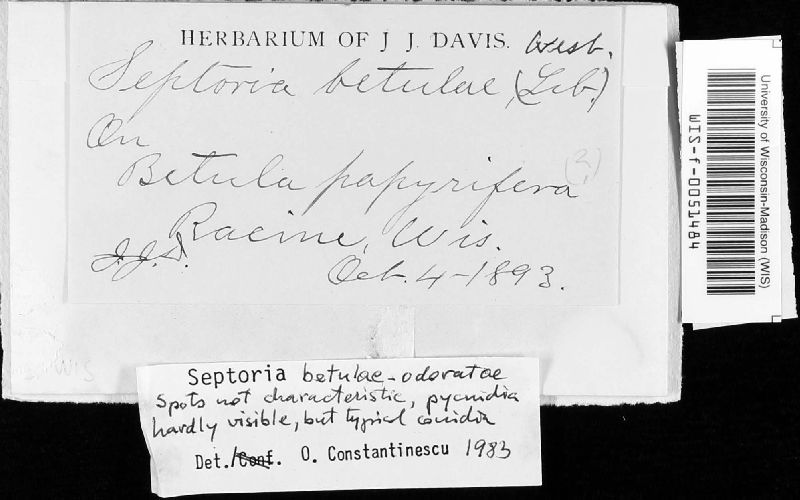 HERBARIUM OF J J. DAVIS. West.
Septoria betulae (Lib.)
On
Betula papyrifera
(3)
Racine, Wis.
J.J.D.
Oct. 4-1893.
University of Wisconsin-Madison (WIS)
WIS-f-0051484
WIS
Septoria betulae-odoratae
Spots not characteristic, pycnidia
hardly visible, but typical conidia
Det./Conf. O. Constantinescu 1983